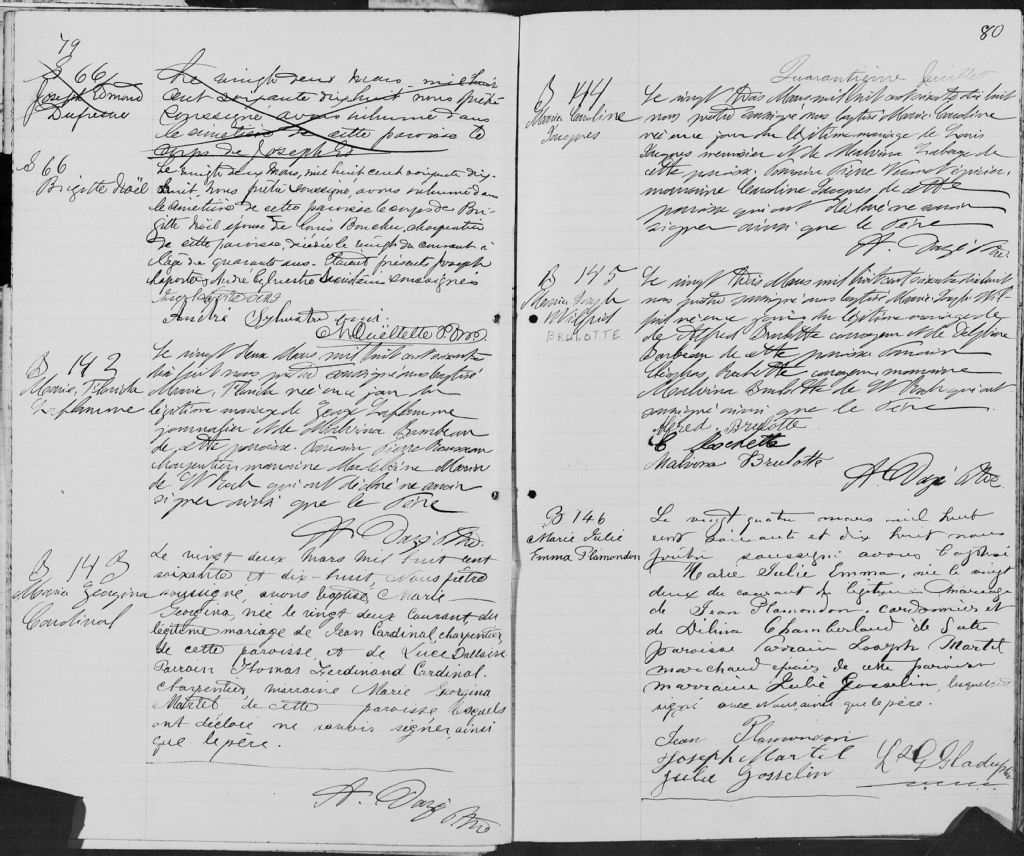 79
S 66
Joseph Edmond
Dufresne
Le vingt deux Mars mil huit
cent soixante dix huit nous prêtre
soussigné avons inhumé dans
le cimetière de cette paroisse le
corps de Joseph Ed
S 66
Brigitte Noël
Le vingt deux Mars, mil huit cent soixante dix
huit nous prêtre soussigné avons inhumé dans
le cimetière de cette paroisse le corps de Bri-
gitte Noël épouse de Louis Boucher, charpentier
de cette paroisse, décédée le vingt du courant à
l'age de quarante ans. Etaient présents Joseph
Laporte, André Sylvestre soussignés
André Sylvestre
Ouellette Ptre
B 142
Marie, Blanche
Laflamme
Le vingt deux Mars mil huit cent soixante
dix huit nous prêtre soussigné avons baptisé
Marie, Blanche née ce jour du
légitime mariage de Laflamme
journalier & de Malvina
de cette paroisse. Parrain Pierre Rousseau
charpentier, marraine
de St Roch qui ont déclaré ne savoir
signer ainsi que le Père
A. Dazé Ptre
B 143
Marie Géorgina
Cardinal
Le vingt deux Mars mil huit cent
soixante et dix-huit, Nous prêtre
soussigné, avons baptisé, Marie
Georgina, née le vingt deux courant du
légitime mariage de Jean Cardinal, charpentier
de cette paroisse et de Luce Dallaire
Parrain Thomas Ferdinand Cardinal
charpentier, marraine Marie Georgina
Martel de cette paroisse lesquels
ont déclaré ne savoir signer, ainsi
que le père.
A. Dazé Ptre
80
Quarantième feuillet
B 144
Marie Caroline
Jacques
Le vingt trois Mars mil huit cent soixante dix huit
nous prêtre soussigné avons baptisé Marie Caroline
née ce jour du légitime mariage de Louis
Jacques menuisier & de Malvina de
cette paroisse. Parrain Pierre épicier,
marraine Caroline Jacques de cette
paroisse qui ont déclaré ne savoir
signer ainsi que le Père
A. Dazé Ptre
B 145
Marie Joseph
Wilfrid
BRULOTTE
Le vingt trois Mars mil huit cent soixante dix huit
nous prêtre soussigné avons baptisé Marie Joseph Wil-
frid né ce jour du légitime mariage de
de Alfred Brulotte corroyeur & de Delphine
Barbeau de cette paroisse Parrain
corroyeur, marraine
Malvina Brulotte de St Roch qui ont
soussigné ainsi que le Père
Alfred Brulotte
Malvina Brulotte
A. Dazé Ptre
B 146
Marie Julie
Emma Plamondon
Le vingt quatre mars mil huit
cent soixante et dix huit nous
prêtre soussigné avons baptisé
Marie Julie Emma, née le vingt
deux du courant du légitime mariage
de Jean Plamondon, cordonnier et
de Délina Chamberland de cette
paroisse Parrain Joseph Martel
marchand épicier de cette paroisse
marraine Julie Gosselin, lesquels ont
signé avec nous, ainsi que le père.
Jean Plamondon
Joseph Martel
Julie Gosselin